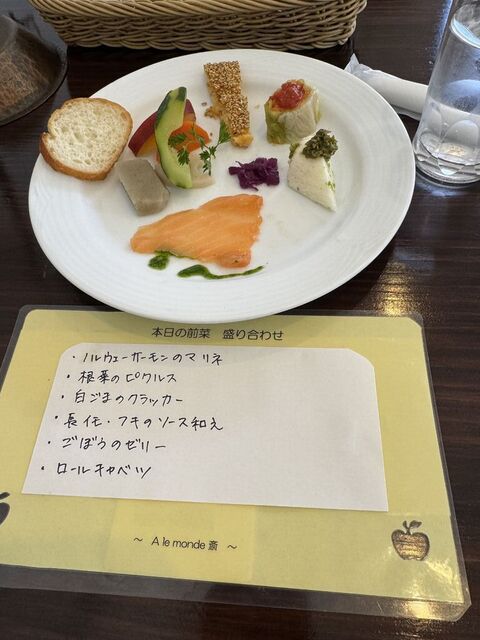 本日の前菜 盛り合わせ
・ノルウェーサーモンのマリネ
・根菜のピクルス
・白ごまのクラッカー
・長イモ・フキのソース和え
・ごぼうのゼリー
・ロールキャベツ
～ A le monde 斎 ～